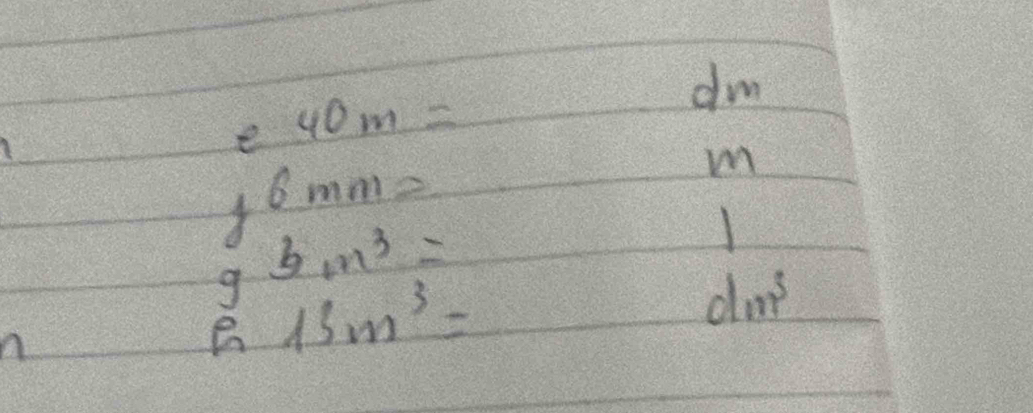 e 40 m = dm
f 6 mm = m
g 3 m³ = l
h 13 m³ = dm³